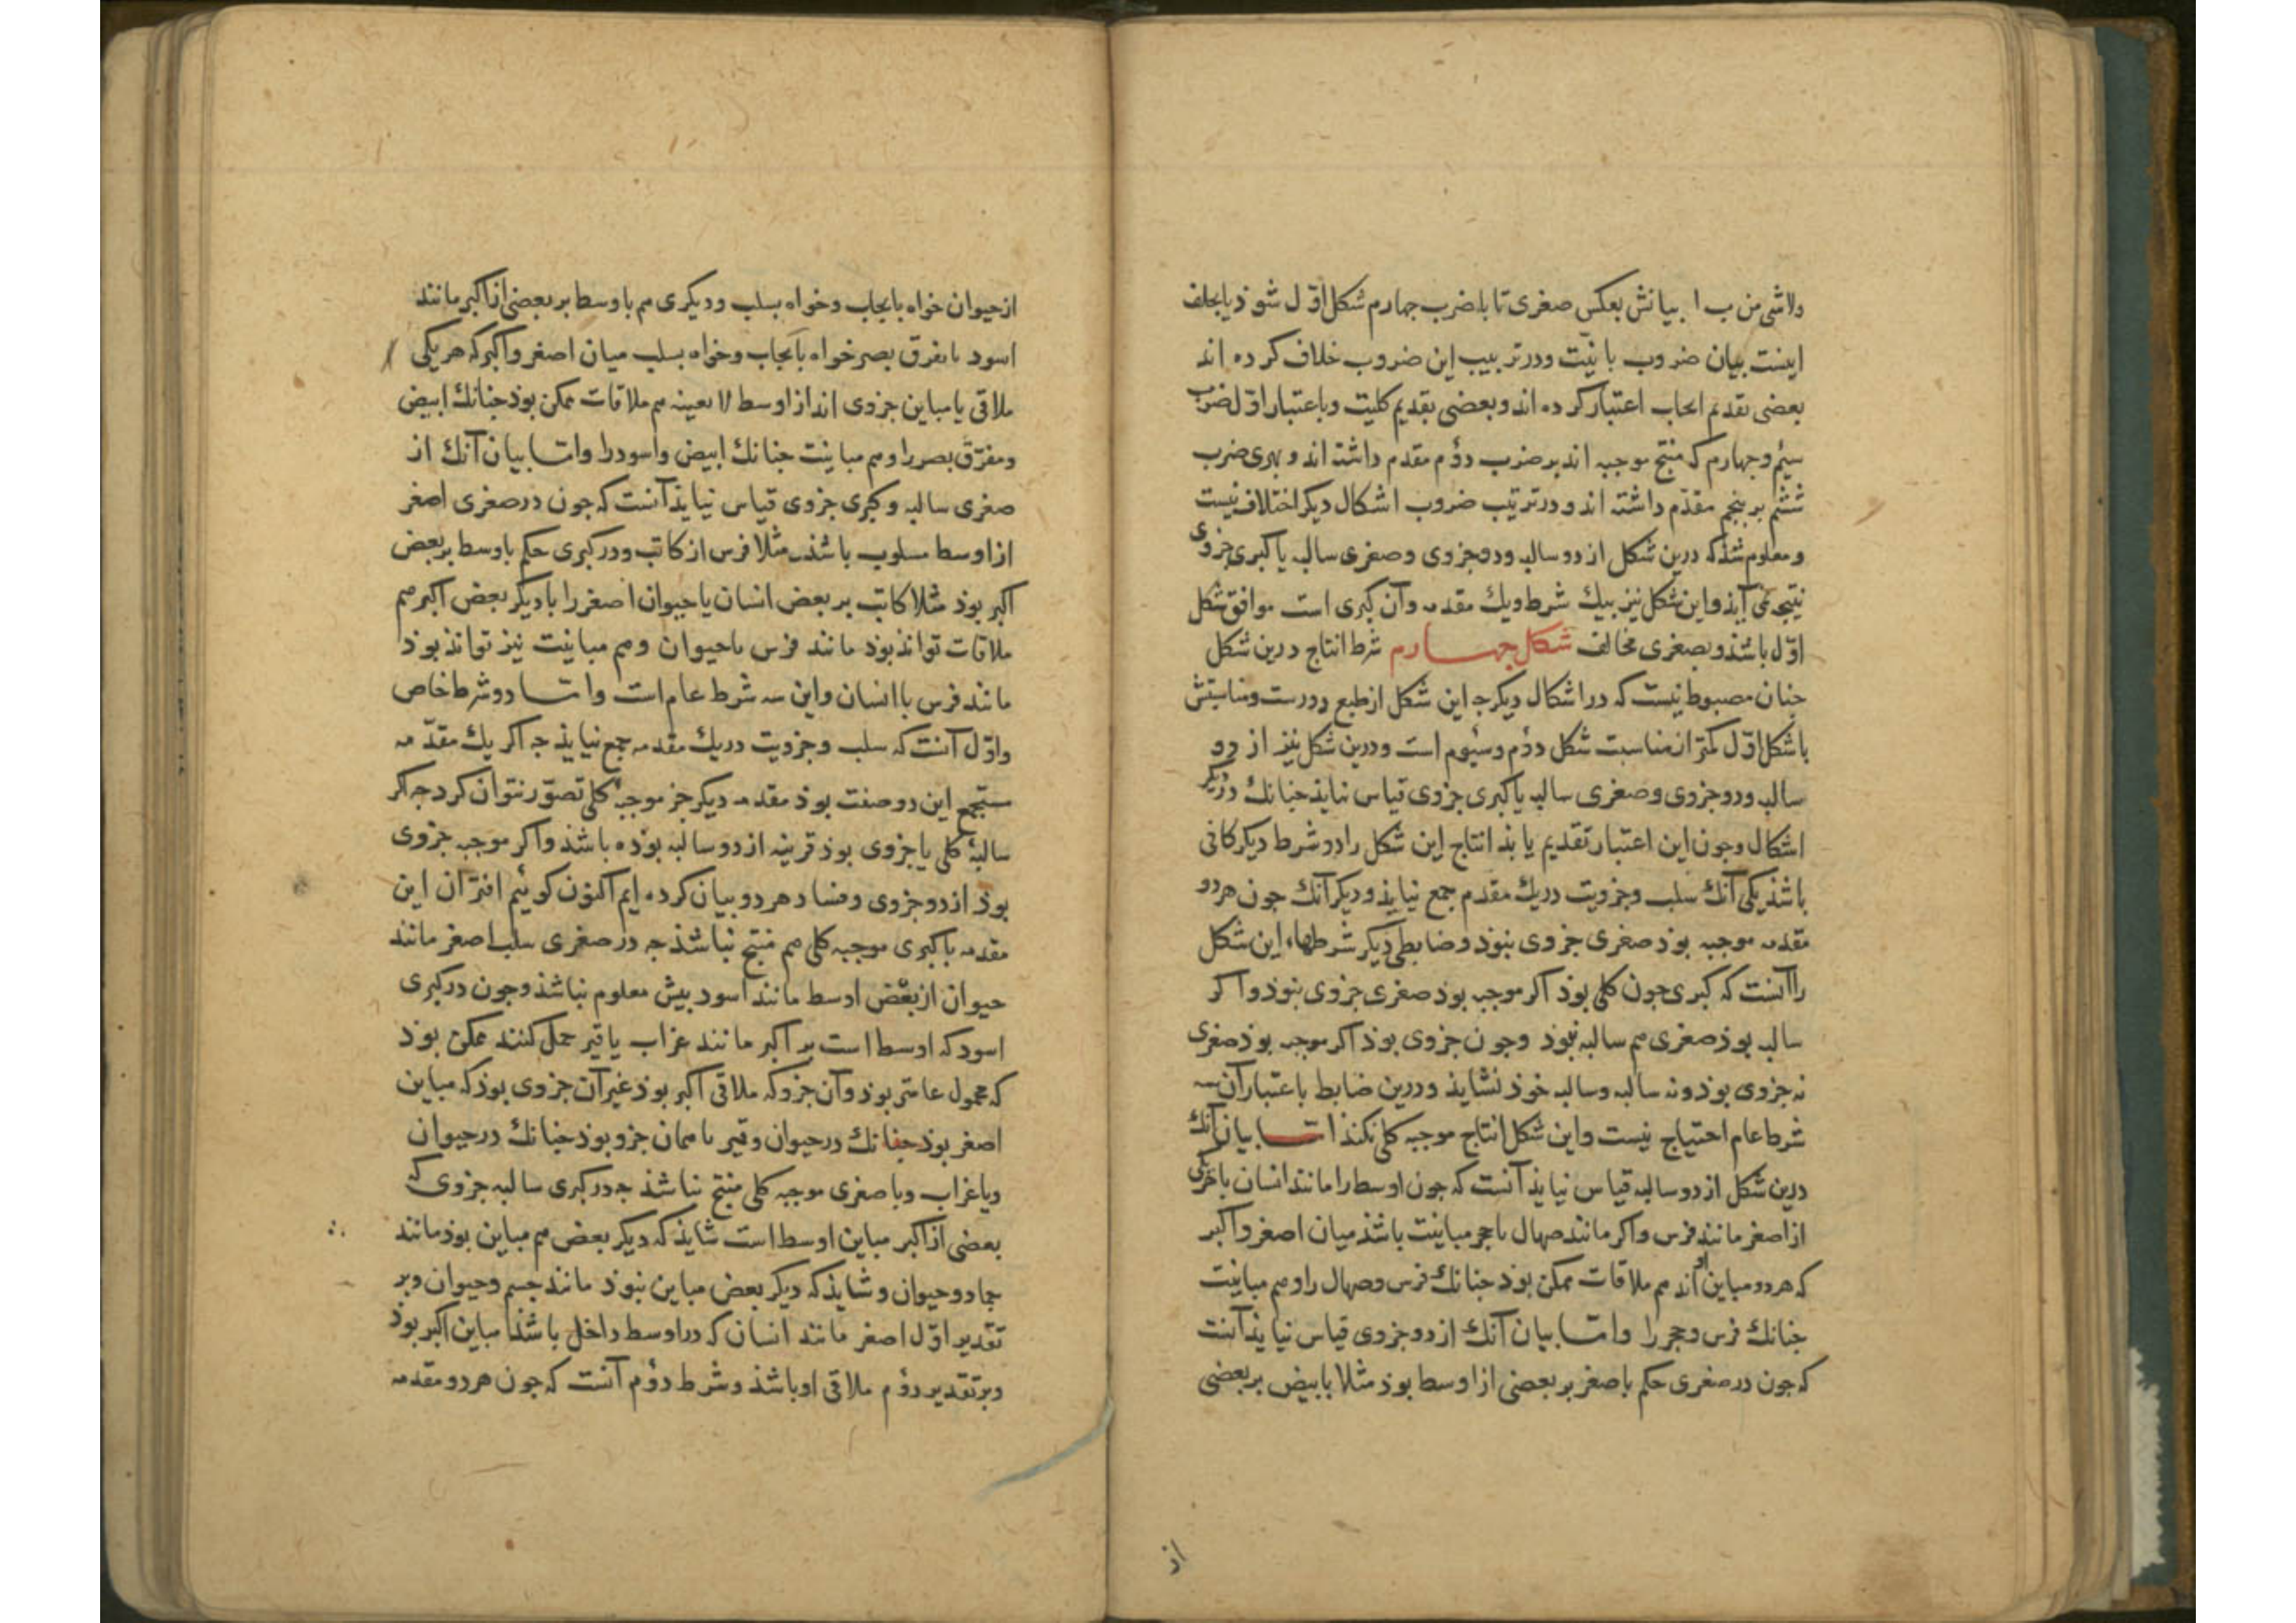 ولاشی من ب ا بیانش بعکس صغری تا با ضرب چهارم شکل اول شوذ یا بخلف
اینست بیان ضروب بانیت ودر ترتیب این ضروب خلاف کرده اند
بعضی تقدیم ایجاب اعتبار کرده اند وبعضی تقدیم کلیت وباعتبار اول ضرب
سیم وجهارم که منتج موجبه اند بر ضرب دوم مقدم داشته اند و ضرب
ششم بر پنجم مقدم داشته اند ودر ترتیب ضروب اشکال دیکر اختلاف نیست
ومعلوم شذ که درین شکل از دو سالبه ودو جزوی وصغری سالبه با کبری جزوی
نتیجه نمی آیذ واین شکل نیز بیک شرط ویک مقدمه وآن کبری است موافق شکل
اول باشذ وبصغری مخالف شکل جهارم شرط انتاج درین شکل
جنان مضبوط نیست که در اشکال دیکر جه این شکل از طبع دورست ومناسبتش
با شکل اول کمتر از مناسبت شکل دوم وسیوم است ودرین شکل نیز از دو
سالبه ودو جزوی وصغری سالبه با کبری جزوی قیاس نیایذ جنانک در دیکر
اشکال وجون این اعتبار تقدیم یابذ انتاج این شکل را دو شرط دیکر کافی
باشذ یکی آنک سلب وجزویت در یک مقدم جمع نیایذ ودیکر آنک جون هر دو
مقدمه موجبه بوذ صغری جزوی نبوذ وضابطی دیکر شرطهاء این شکل
را آنست که کبری جون کلی بوذ اکر موجبه بوذ صغری جزوی نبوذ واکر
سالبه بوذ صغری هم سالبه نبوذ وجون جزوی بوذ اکر موجبه بوذ صغری
نه جزوی بوذ ونه سالبه وسالبه خوذ نشایذ ودرین ضابط باعتبار آن سه
شرط عام احتیاج نیست واین شکل انتاج موجبه کلی نکند اما بیان آنک
درین شکل از دو سالبه قیاس نیایذ آنست که جون اوسط را مانند انسان با هر یکی
از اصغر مانند فرس واکبر مانند صهال یا حجر مباینت باشذ میان اصغر واکبر
که هر دو مباین او اند هم ملاقات ممکن بوذ جنانک فرس وصهال را وهم مباینت
جنانک فرس وحجر را واما بیان آنک از دو جزوی قیاس نیایذ آنست
که جون در صغری حکم باصغر بر بعضی از اوسط بوذ مثلا بابیض بر بعضی
از
از حیوان خواه بایجاب وخواه بسلب ودیکری هم باوسط بر بعضی از اکبر مانند
اسود یا مفرق بصر خواه بایجاب وخواه بسلب میان اصغر واکبر که هر یکی
ملاقی یا مباین جزوی اند از اوسط لا بعینه هم ملاقات ممکن بوذ جنانک ابیض
ومفرق بصر را وهم مباینت جنانک ابیض واسود را واما بیان آنک از
صغری سالبه وکبری جزوی قیاس نیایذ آنست که جون در صغری اصغر
از اوسط مسلوب باشذ مثلا فرس از کاتب ودر کبری حکم باوسط بر بعض
اکبر بوذ مثلا کاتب بر بعض انسان یا حیوان اصغر را با دیکر بعض اکبر هم
ملاقات تواند بوذ مانند فرس با حیوان وهم مباینت نیز تواند بوذ
مانند فرس با انسان واین سه شرط عام است واما دو شرط خاص
واول آنست که سلب وجزویت در یک مقدمه جمع نیایذ جه اکر یک مقدمه
مستجمع این دو صفت بوذ مقدمه دیکر جز موجبه کلی تصور نتوان کرد جه اکر
سالبه کلی یا جزوی بوذ قرینه از دو سالبه بوذه باشذ واکر موجبه جزوی
بوذ از دو جزوی وفساد هر دو بیان کرده ایم اکنون کوییم اقتران این
مقدمه با کبری موجبه کلی هم منتج نباشذ جه در صغری سلب اصغر مانند
حیوان از بعض اوسط مانند اسود بیش معلوم نباشذ وجون در کبری
اسود که اوسط است بر اکبر مانند غراب یا قیر حمل کنند ممکن بوذ
که محمول عامتر بوذ وآن جزو که ملاقی اکبر بوذ غیر آن جزوی بوذ که مباین
اصغر بوذ جنانک در حیوان وقیر یا همان جزو بوذ جنانک در حیوان
ویا غراب وبا صغری موجبه کلی منتج نباشذ جه در کبری سالبه جزوی که
بعضی از اکبر مباین اوسط است شایذ که دیکر بعض هم مباین بوذ مانند
جماد وحیوان وشایذ که دیکر بعض مباین نبوذ مانند جسم وحیوان وبر
تقدیر اول اصغر مانند انسان که در اوسط داخل باشذ مباین اکبر بوذ
وبر تقدیر دوم ملاقی او باشذ وشرط دوم آنست که جون هر دو مقدمه